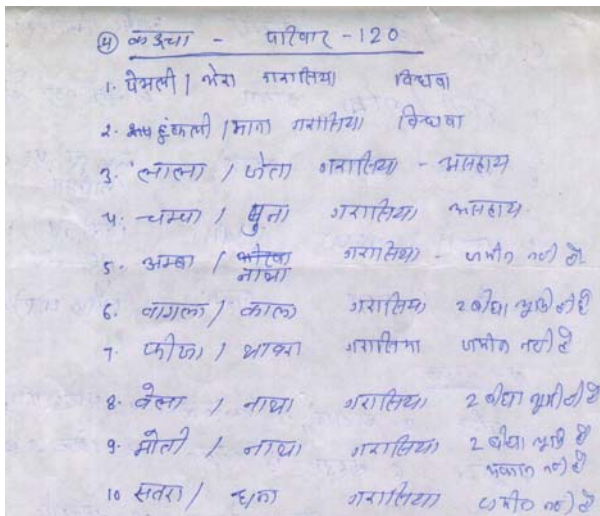 ④ कड्चा - परिवार - 120
1. पेमली / भेरा गरासिया विधवा
2. हुंकली / माना गरासिया विधवा
3. लाला / जेता गरासिया - असहाय
4. चम्पा / पुना गरासिया असहाय
5. अम्बा / नाथा गरासिया - जमीन नही है
6. वागला / काला गरासिया 2 बीघा भूमि ही है
7. फीजा / थावरा गरासिया जमीन नही है
8. वेला / नाथा गरासिया 2 बीघा भूमि ही है
9. मोती / नाथा गरासिया 2 बीघा भूमि है
मकान नही है
10 सतरा / धना गरासिया जमीन नही है